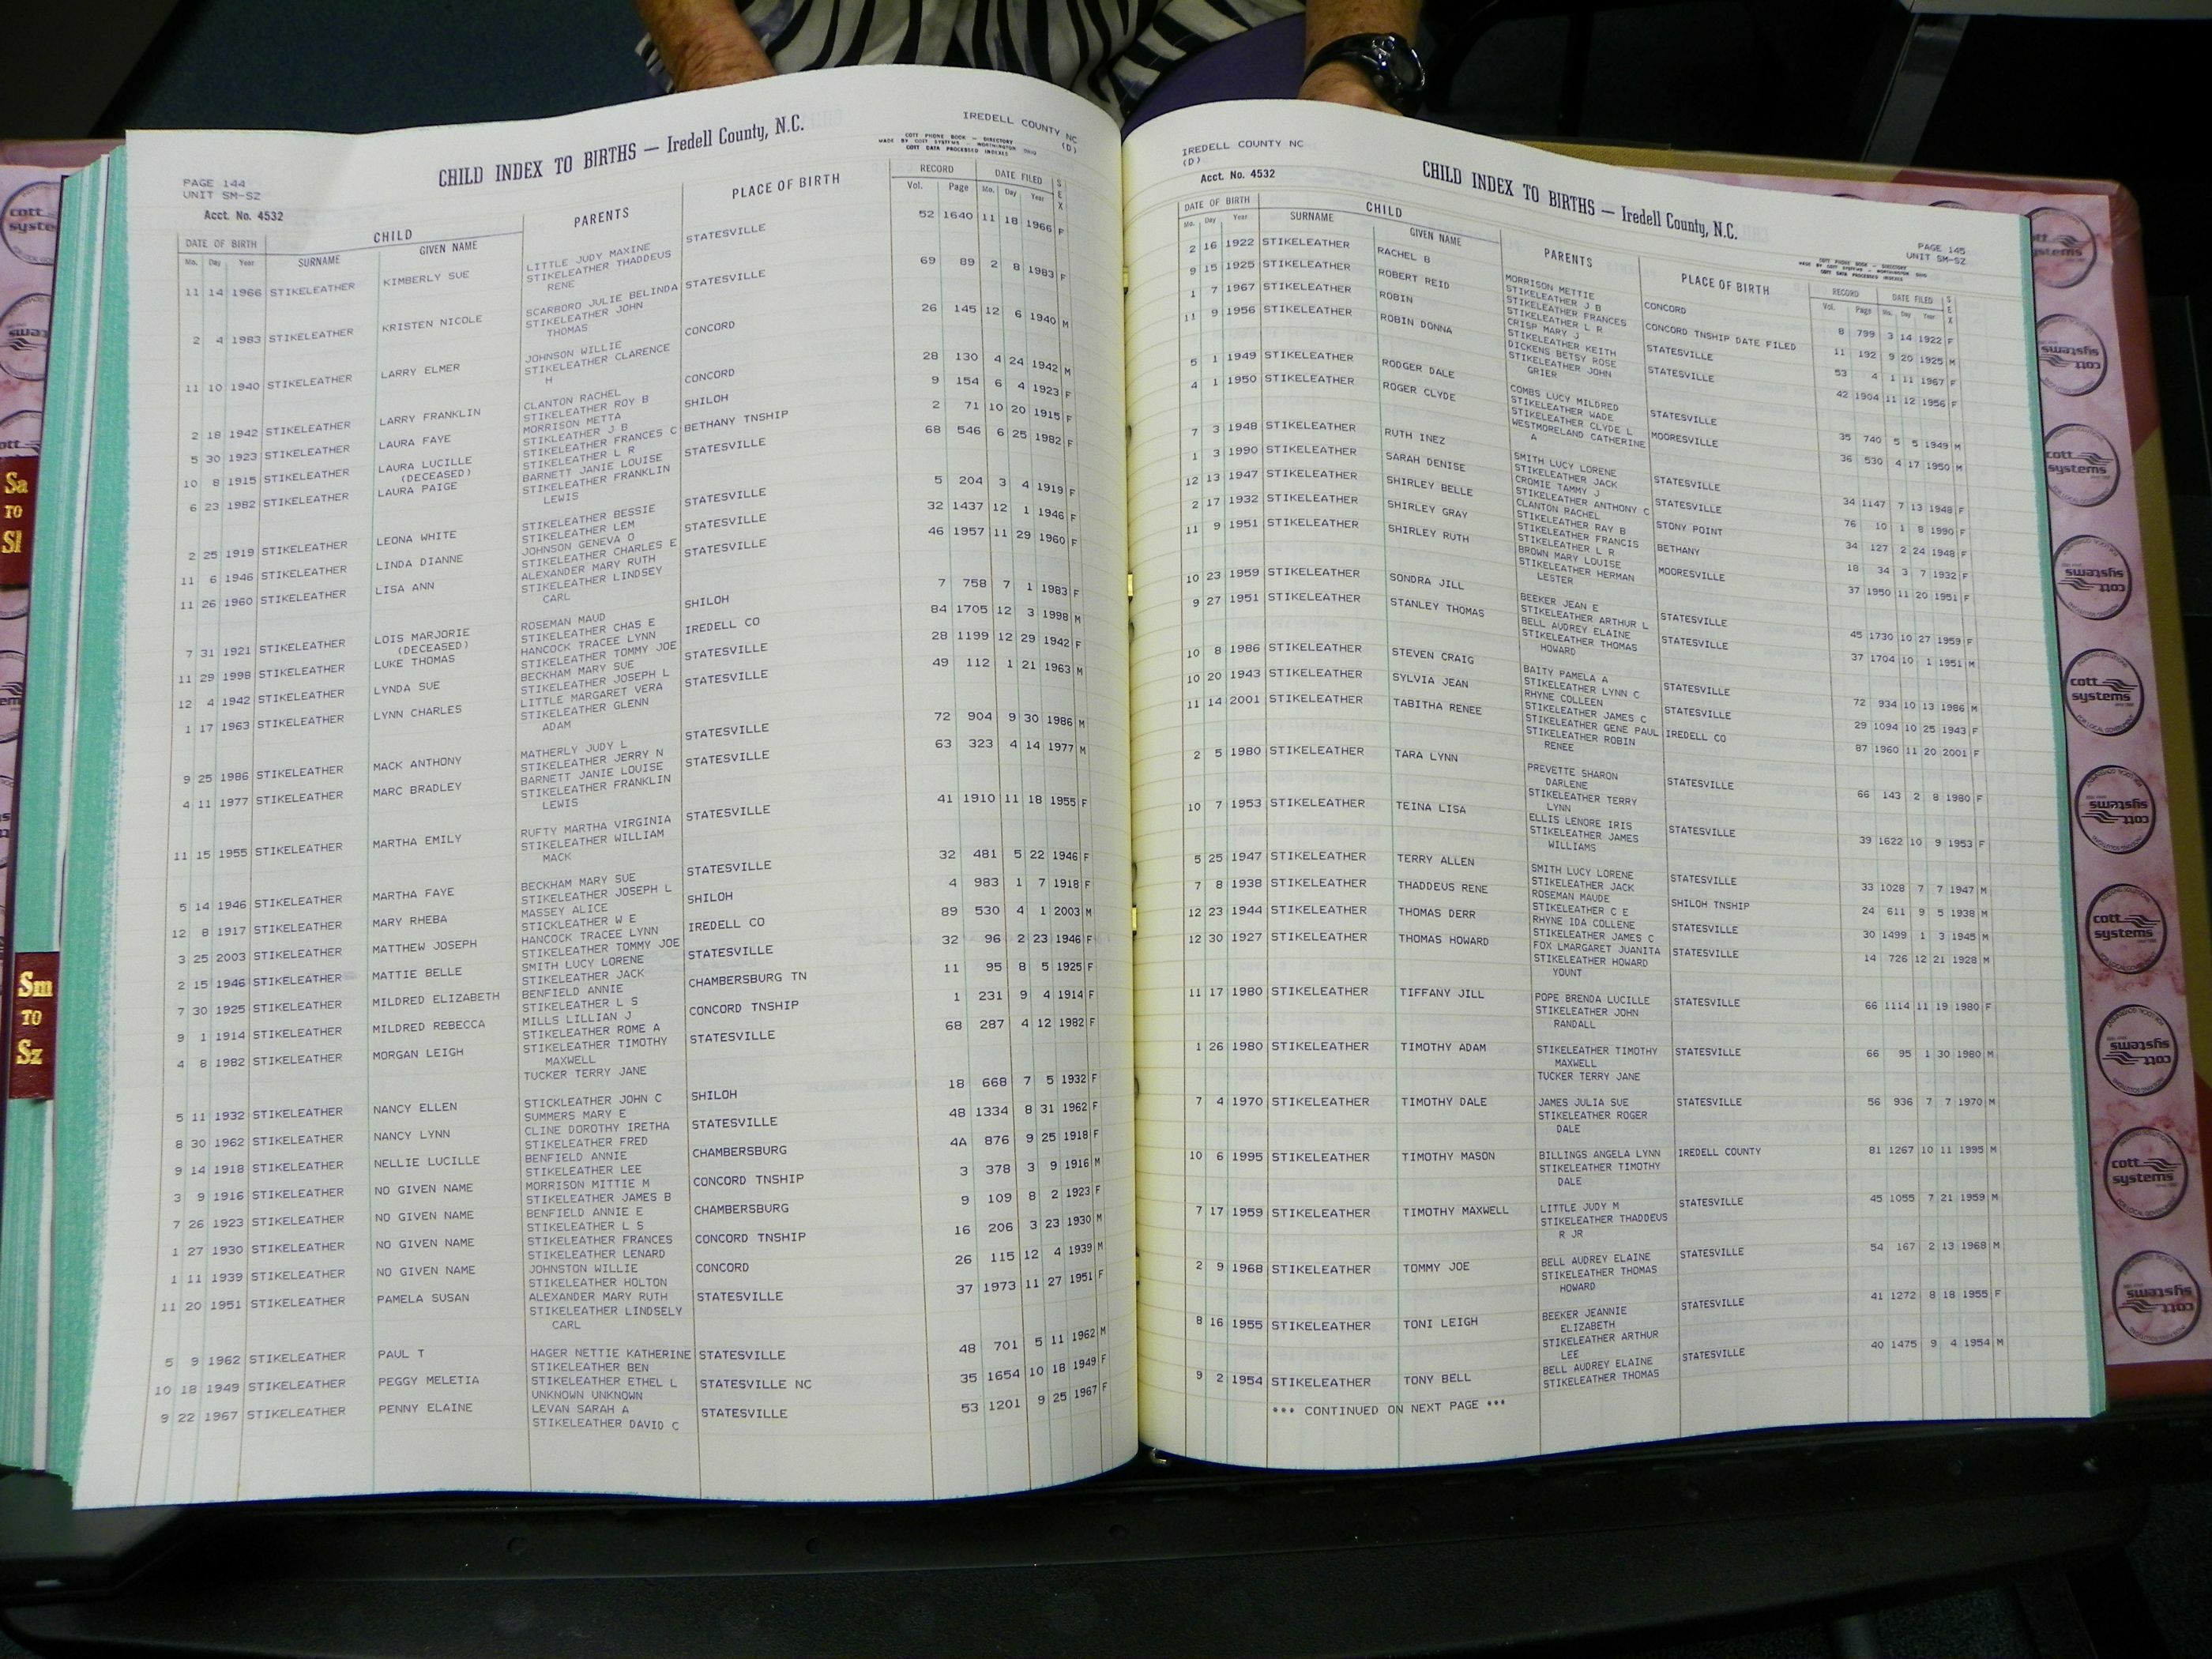 IREDELL COUNTY NC
(D)
CHILD INDEX TO BIRTHS — Iredell County, N.C.
COTT PHONE BOOK — DIRECTORY
MADE BY COTT SYSTEMS — WORTHINGTON OHIO
COTT DATA PROCESSED INDEXES
PAGE 144
UNIT SM-SZ
Acct. No. 4532
DATE OF BIRTH CHILD PARENTS PLACE OF BIRTH RECORD DATE FILED SEX
Mo. Day Year SURNAME GIVEN NAME Vol. Page Mo. Day Year
11 14 1966 STIKELEATHER KIMBERLY SUE LITTLE JUDY MAXINE STATESVILLE 52 1640 11 18 1966 F
STIKELEATHER THADDEUS
RENE
2 4 1983 STIKELEATHER KRISTEN NICOLE SCARBORO JULIE BELINDA STATESVILLE 69 89 2 8 1983 F
STIKELEATHER JOHN
THOMAS
11 10 1940 STIKELEATHER LARRY ELMER JOHNSON WILLIE CONCORD 26 145 12 6 1940 M
STIKELEATHER CLARENCE
H
2 18 1942 STIKELEATHER LARRY FRANKLIN CLANTON RACHEL CONCORD 28 130 4 24 1942 M
STIKELEATHER ROY B
5 30 1923 STIKELEATHER LAURA FAYE MORRISON METTA SHILOH 9 154 6 4 1923 F
STIKLEATHER J B
10 8 1915 STIKELEATHER LAURA LUCILLE STIKELEATHER FRANCES C BETHANY TNSHIP 2 71 10 20 1915 F
(DECEASED) STIKELEATHER L R
6 23 1982 STIKELEATHER LAURA PAIGE BARNETT JANIE LOUISE STATESVILLE 68 546 6 25 1982 F
STIKELEATHER FRANKLIN
LEWIS
2 25 1919 STIKELEATHER LEONA WHITE STIKELEATHER BESSIE STATESVILLE 5 204 3 4 1919 F
STIKELEATHER LEM
11 6 1946 STIKELEATHER LINDA DIANNE JOHNSON GENEVA O STATESVILLE 32 1437 12 1 1946 F
STIKELEATHER CHARLES E
11 26 1960 STIKELEATHER LISA ANN ALEXANDER MARY RUTH STATESVILLE 46 1957 11 29 1960 F
STIKELEATHER LINDSEY
CARL
7 31 1921 STIKELEATHER LOIS MARJORIE ROSEMAN MAUD SHILOH 7 758 7 1 1983 F
(DECEASED) STIKELEATHER CHAS E
11 29 1998 STIKELEATHER LUKE THOMAS HANCOCK TRACEE LYNN IREDELL CO 84 1705 12 3 1998 M
STIKELEATHER TOMMY JOE
12 4 1942 STIKELEATHER LYNDA SUE BECKHAM MARY SUE STATESVILLE 28 1199 12 29 1942 F
STIKELEATHER JOSEPH L
1 17 1963 STIKELEATHER LYNN CHARLES LITTLE MARGARET VERA STATESVILLE 49 112 1 21 1963 M
STIKELEATHER GLENN
ADAM
9 25 1986 STIKELEATHER MACK ANTHONY MATHERLY JUDY L STATESVILLE 72 904 9 30 1986 M
STIKELEATHER JERRY N
4 11 1977 STIKELEATHER MARC BRADLEY BARNETT JANIE LOUISE STATESVILLE 63 323 4 14 1977 M
STIKELEATHER FRANKLIN
LEWIS
11 15 1955 STIKELEATHER MARTHA EMILY RUFTY MARTHA VIRGINIA STATESVILLE 41 1910 11 18 1955 F
STIKELEATHER WILLIAM
MACK
5 14 1946 STIKELEATHER MARTHA FAYE BECKHAM MARY SUE STATESVILLE 32 481 5 22 1946 F
STIKELEATHER JOSEPH L
12 8 1917 STIKELEATHER MARY RHEBA MASSEY ALICE SHILOH 4 983 1 7 1918 F
STICKLEATHER W E
3 25 2003 STIKELEATHER MATTHEW JOSEPH HANCOCK TRACEE LYNN IREDELL CO 89 530 4 1 2003 M
STIKELEATHER TOMMY JOE
2 15 1946 STIKELEATHER MATTIE BELLE SMITH LUCY LORENE STATESVILLE 32 96 2 23 1946 F
STIKELEATHER JACK
7 30 1925 STIKELEATHER MILDRED ELIZABETH BENFIELD ANNIE CHAMBERSBURG TN 11 95 8 5 1925 F
STIKELEATHER L S
9 1 1914 STIKELEATHER MILDRED REBECCA MILLS LILLIAN J CONCORD TNSHIP 1 231 9 4 1914 F
STIKELEATHER ROME A
4 8 1982 STIKELEATHER MORGAN LEIGH STIKELEATHER TIMOTHY STATESVILLE 68 287 4 12 1982 F
MAXWELL
TUCKER TERRY JANE
5 11 1932 STIKELEATHER NANCY ELLEN STICKLEATHER JOHN C SHILOH 18 668 7 5 1932 F
SUMMERS MARY E
8 30 1962 STIKELEATHER NANCY LYNN CLINE DOROTHY IRETHA STATESVILLE 48 1334 8 31 1962 F
STIKELEATHER FRED
9 14 1918 STIKELEATHER NELLIE LUCILLE BENFIELD ANNIE CHAMBERSBURG 4A 876 9 25 1918 F
STIKELEATHER LEE
3 9 1916 STIKELEATHER NO GIVEN NAME MORRISON MITTIE M CONCORD TNSHIP 3 378 3 9 1916 M
STIKELEATHER JAMES B
7 26 1923 STIKELEATHER NO GIVEN NAME BENFIELD ANNIE E CHAMBERSBURG 9 109 8 2 1923 F
STIKELEATHER L S
1 27 1930 STIKELEATHER NO GIVEN NAME STIKELEATHER FRANCES CONCORD TNSHIP 16 206 3 23 1930 M
STIKELEATHER LENARD
1 11 1939 STIKELEATHER NO GIVEN NAME JOHNSTON WILLIE CONCORD 26 115 12 4 1939 M
STIKELEATHER HOLTON
11 20 1951 STIKELEATHER PAMELA SUSAN ALEXANDER MARY RUTH STATESVILLE 37 1973 11 27 1951 F
STIKELEATHER LINDSELY
CARL
5 9 1962 STIKELEATHER PAUL T HAGER NETTIE KATHERINE STATESVILLE 48 701 5 11 1962 M
STIKELEATHER BEN
10 18 1949 STIKELEATHER PEGGY MELETIA STIKELEATHER ETHEL L STATESVILLE NC 35 1654 10 18 1949 F
UNKNOWN UNKNOWN
9 22 1967 STIKELEATHER PENNY ELAINE LEVAN SARAH A STATESVILLE 53 1201 9 25 1967 F
STIKELEATHER DAVID C
IREDELL COUNTY NC
(D)
Acct. No. 4532
CHILD INDEX TO BIRTHS — Iredell County, N.C.
PAGE 145
UNIT SM-SZ
COTT PHONE BOOK — DIRECTORY
MADE BY COTT SYSTEMS — WORTHINGTON OHIO
COTT DATA PROCESSED INDEXES
DATE OF BIRTH CHILD PARENTS PLACE OF BIRTH RECORD DATE FILED SEX
Mo. Day Year SURNAME GIVEN NAME Vol. Page Mo. Day Year
2 16 1922 STIKELEATHER RACHEL B MORRISON METTIE CONCORD 8 799 3 14 1922 F
STIKELEATHER J B
9 15 1925 STIKELEATHER ROBERT REID STIKELEATHER FRANCES CONCORD TNSHIP DATE FILED 11 192 9 20 1925 M
STIKELEATHER L R
1 7 1967 STIKELEATHER ROBIN CRISP MARY J STATESVILLE 53 4 1 11 1967 F
STIKELEATHER KEITH
11 9 1956 STIKELEATHER ROBIN DONNA DICKENS BETSY ROSE STATESVILLE 42 1904 11 12 1956 F
STIKELEATHER JOHN
GRIER
5 1 1949 STIKELEATHER RODGER DALE COMBS LUCY MILDRED STATESVILLE 35 740 5 5 1949 M
STIKELEATHER WADE
4 1 1950 STIKELEATHER ROGER CLYDE STIKELEATHER CLYDE L MOORESVILLE 36 530 4 17 1950 M
WESTMORELAND CATHERINE
A
7 3 1948 STIKELEATHER RUTH INEZ SMITH LUCY LORENE STATESVILLE 34 1147 7 13 1948 F
STIKELEATHER JACK
1 3 1990 STIKELEATHER SARAH DENISE CROMIE TAMMY J STATESVILLE 76 10 1 8 1990 F
STIKELEATHER ANTHONY C
12 13 1947 STIKELEATHER SHIRLEY BELLE CLANTON RACHEL STONY POINT 34 127 2 24 1948 F
STIKELEATHER RAY B
2 17 1932 STIKELEATHER SHIRLEY GRAY STIKELEATHER FRANCIS BETHANY 18 34 3 7 1932 F
STIKELEATHER L R
11 9 1951 STIKELEATHER SHIRLEY RUTH BROWN MARY LOUISE MOORESVILLE 37 1950 11 20 1951 F
STIKELEATHER HERMAN
LESTER
10 23 1959 STIKELEATHER SONDRA JILL BEEKER JEAN E STATESVILLE 45 1730 10 27 1959 F
STIKELEATHER ARTHUR L
9 27 1951 STIKELEATHER STANLEY THOMAS BELL AUDREY ELAINE STATESVILLE 37 1704 10 1 1951 M
STIKELEATHER THOMAS
HOWARD
10 8 1986 STIKELEATHER STEVEN CRAIG BAITY PAMELA A STATESVILLE 72 934 10 13 1986 M
STIKELEATHER LYNN C
10 20 1943 STIKELEATHER SYLVIA JEAN RHYNE COLLEEN STATESVILLE 29 1094 10 25 1943 F
STIKELEATHER JAMES C
11 14 2001 STIKELEATHER TABITHA RENEE STIKELEATHER GENE PAUL IREDELL CO 87 1960 11 20 2001 F
STIKELEATHER ROBIN
RENEE
2 5 1980 STIKELEATHER TARA LYNN PREVETTE SHARON STATESVILLE 66 143 2 8 1980 F
DARLENE
STIKELEATHER TERRY
LYNN
10 7 1953 STIKELEATHER TEINA LISA ELLIS LENORE IRIS STATESVILLE 39 1622 10 9 1953 F
STIKELEATHER JAMES
WILLIAMS
5 25 1947 STIKELEATHER TERRY ALLEN SMITH LUCY LORENE STATESVILLE 33 1028 7 7 1947 M
STIKELEATHER JACK
7 8 1938 STIKELEATHER THADDEUS RENE ROSEMAN MAUDE SHILOH TNSHIP 24 611 9 5 1938 M
STIKELEATHER C E
12 23 1944 STIKELEATHER THOMAS DERR RHYNE IDA COLLENE STATESVILLE 30 1499 1 3 1945 M
STIKELEATHER JAMES C
12 30 1927 STIKELEATHER THOMAS HOWARD FOX LMARGARET JUANITA STATESVILLE 14 726 12 21 1928 M
STIKELEATHER HOWARD
YOUNT
11 17 1980 STIKELEATHER TIFFANY JILL POPE BRENDA LUCILLE STATESVILLE 66 1114 11 19 1980 F
STIKELEATHER JOHN
RANDALL
1 26 1980 STIKELEATHER TIMOTHY ADAM STIKELEATHER TIMOTHY STATESVILLE 66 95 1 30 1980 M
MAXWELL
TUCKER TERRY JANE
7 4 1970 STIKELEATHER TIMOTHY DALE JAMES JULIA SUE STATESVILLE 56 936 7 7 1970 M
STIKELEATHER ROGER
DALE
10 6 1995 STIKELEATHER TIMOTHY MASON BILLINGS ANGELA LYNN IREDELL COUNTY 81 1267 10 11 1995 M
STIKELEATHER TIMOTHY
DALE
7 17 1959 STIKELEATHER TIMOTHY MAXWELL LITTLE JUDY M STATESVILLE 45 1055 7 21 1959 M
STIKELEATHER THADDEUS
R JR
2 9 1968 STIKELEATHER TOMMY JOE BELL AUDREY ELAINE STATESVILLE 54 167 2 13 1968 M
STIKELEATHER THOMAS
HOWARD
8 16 1955 STIKELEATHER TONI LEIGH BEEKER JEANNIE STATESVILLE 41 1272 8 18 1955 F
ELIZABETH
STIKELEATHER ARTHUR
LEE
9 2 1954 STIKELEATHER TONY BELL BELL AUDREY ELAINE STATESVILLE 40 1475 9 4 1954 M
STIKELEATHER THOMAS
*** CONTINUED ON NEXT PAGE ***
Sa
TO
Sl
Sm
TO
Sz
cott
systems